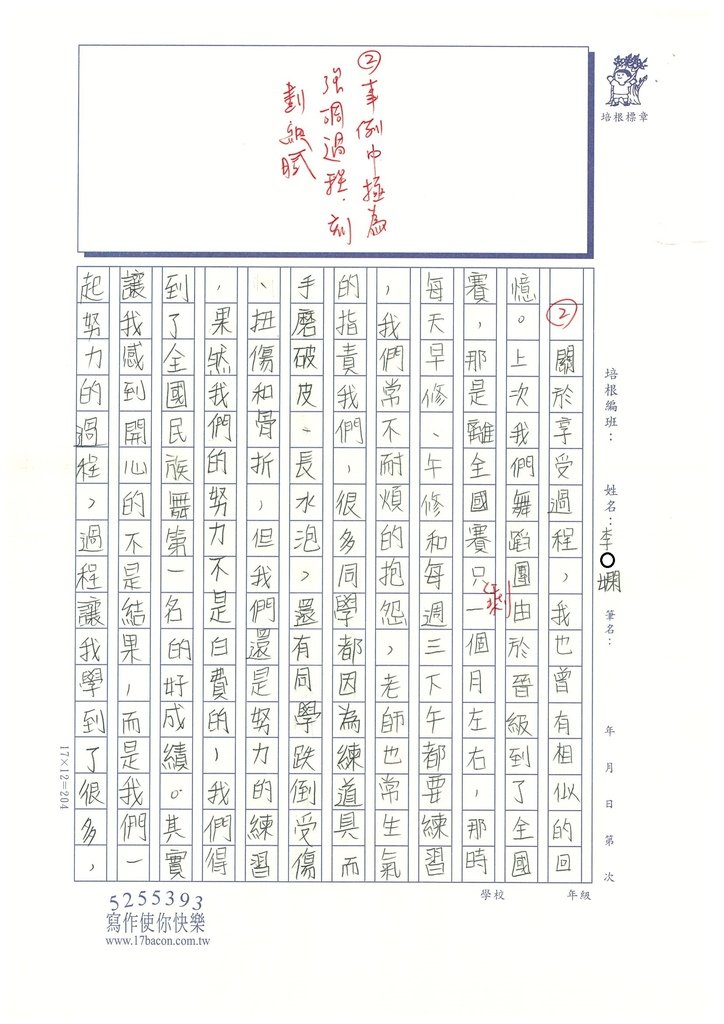 ②事例中極為
強調過程，刻
劃細膩
培根標章
培根編班：
姓名：李○嫻
筆名：
年 月 日 第 次
學校
年級
②關於享受過程，我也曾有相似的回
憶。上次我們舞蹈團由於晉級到了全國
賽，那是離全國賽只剩一個月左右，那時
每天早修、午修和每週三下午都要練習
，我們常不耐煩的抱怨，老師也常生氣
的指責我們，很多同學都因為練道具而
手磨破皮、長水泡，還有同學跌倒受傷
、扭傷和骨折，但我們還是努力的練習
，果然我們的努力不是白費的，我們得
到了全國民族舞第一名的好成績。其實
讓我感到開心的不是結果，而是我們一
起努力的過程，過程讓我學到了很多，
17×12=204
5255393
寫作使你快樂
www.17bacon.com.tw